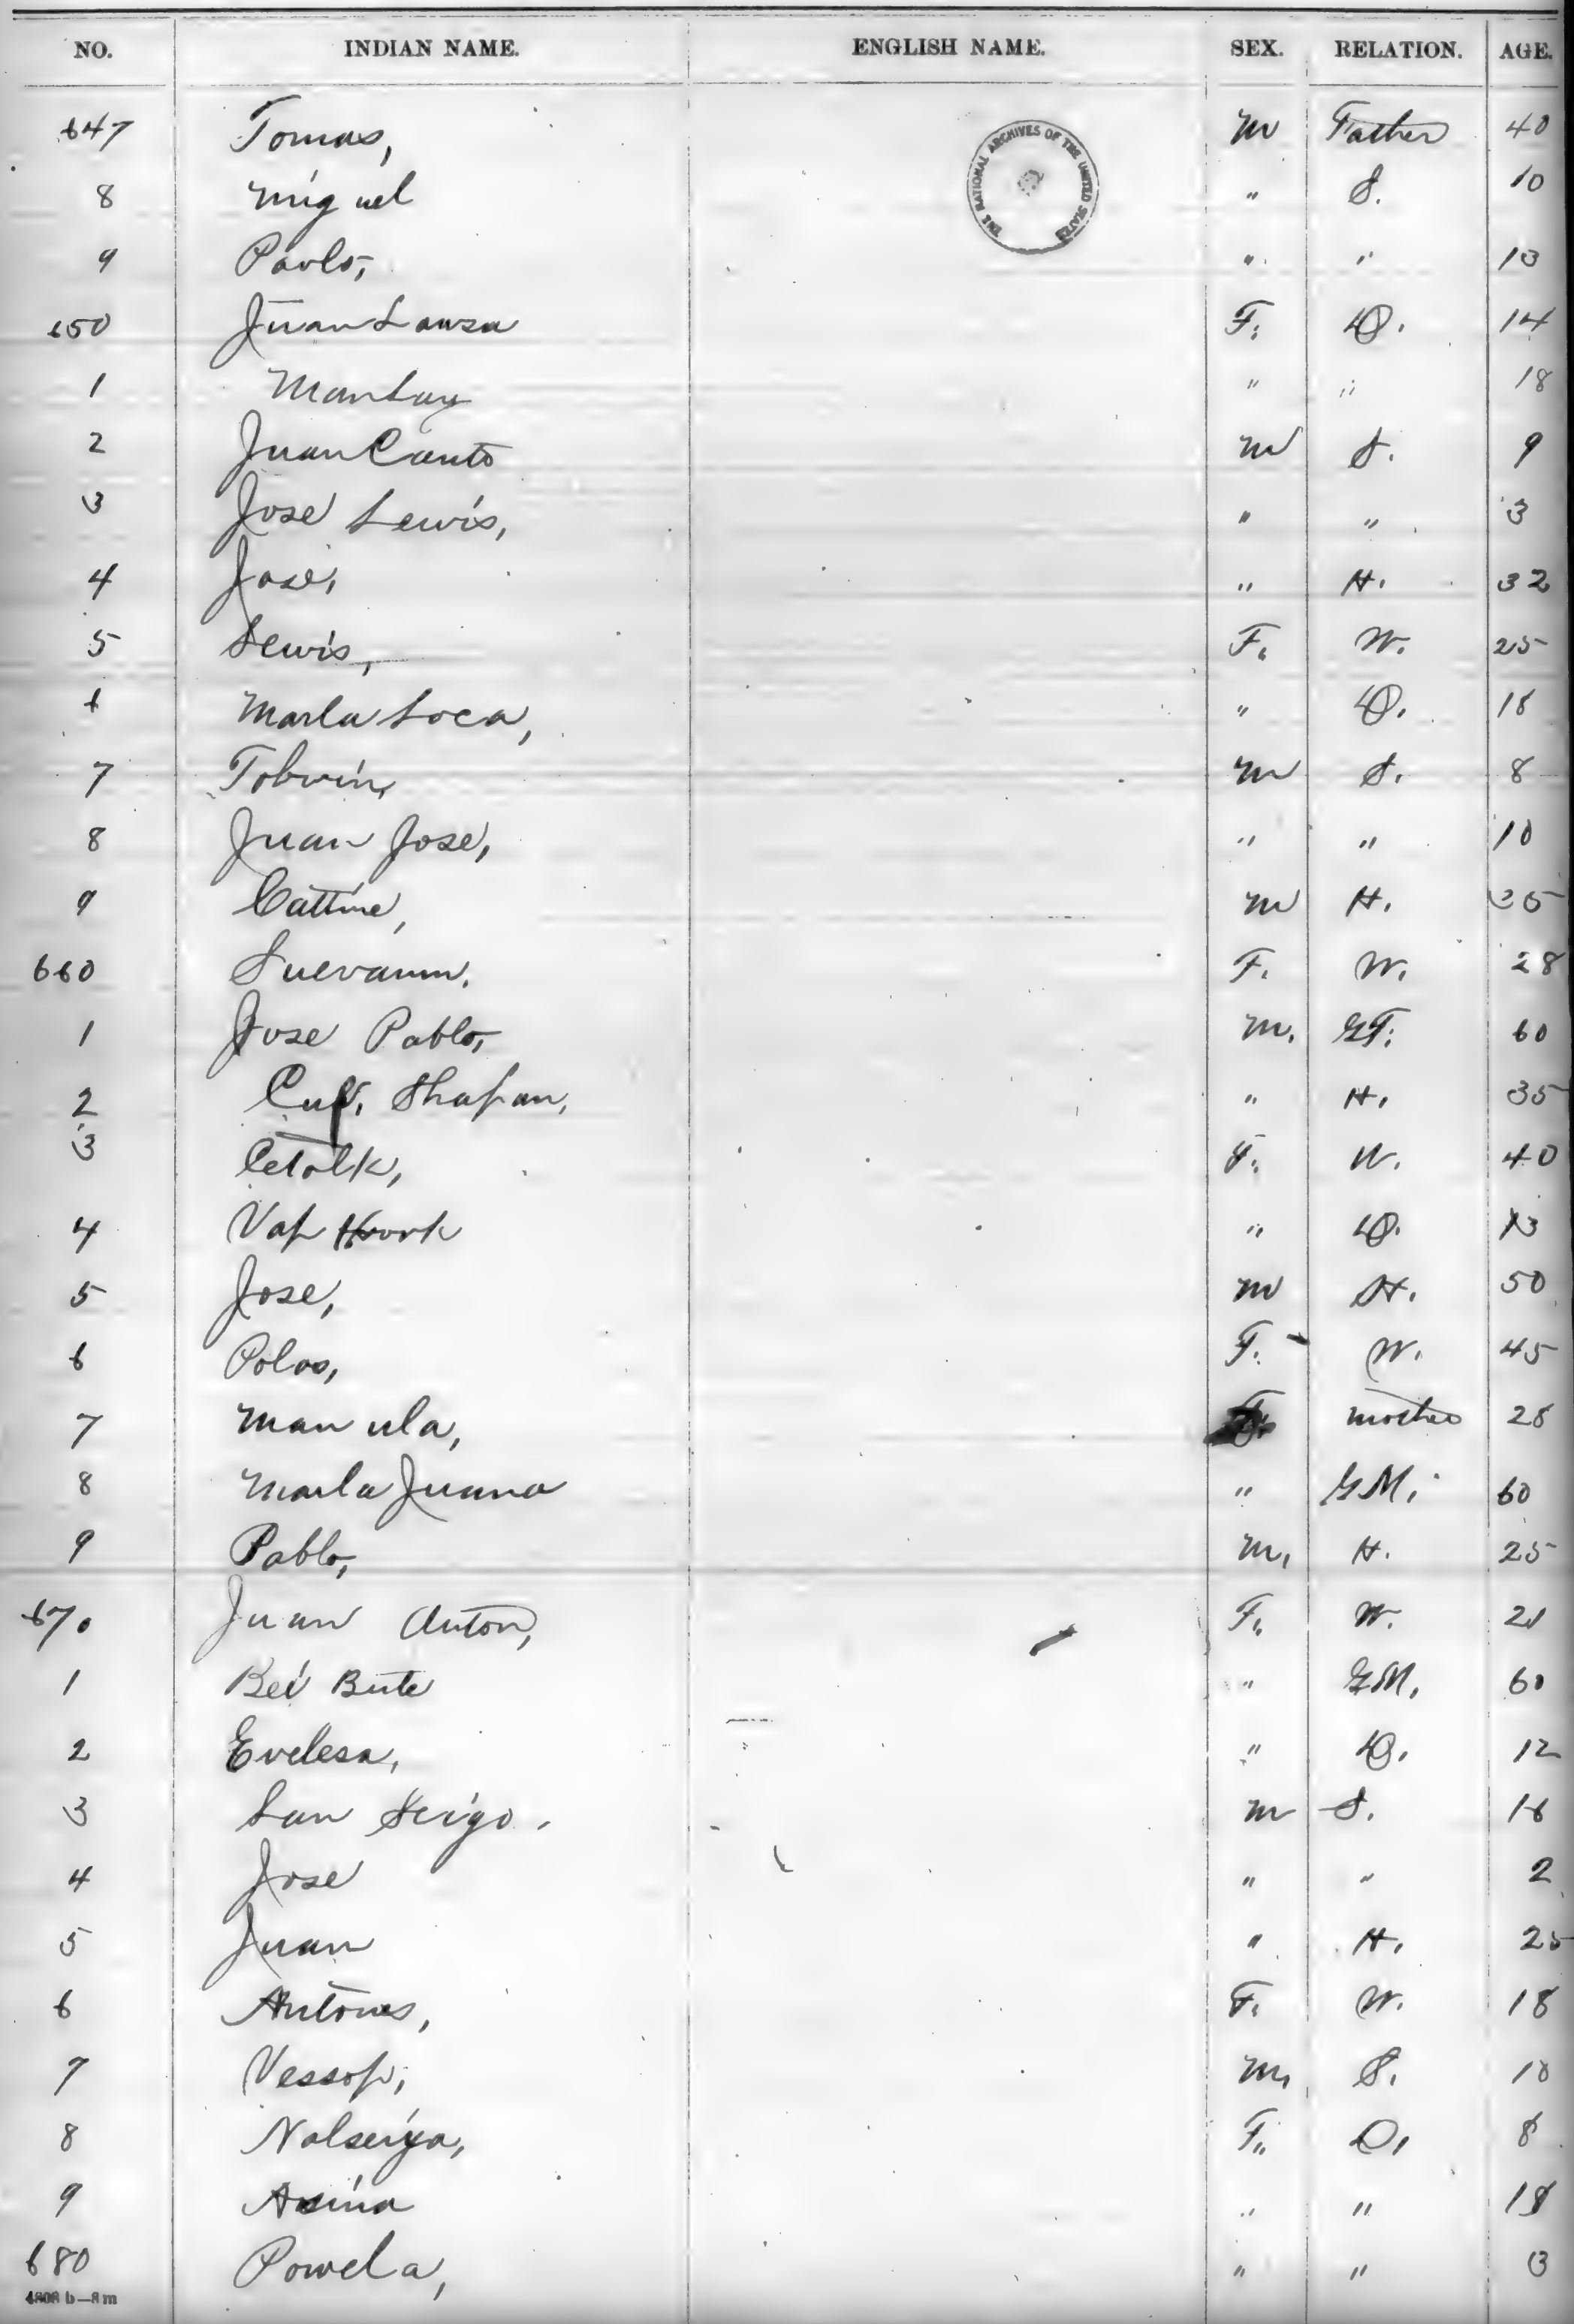 NO. INDIAN NAME. ENGLISH NAME. SEX. RELATION. AGE.
THE NATIONAL ARCHIVES OF THE UNITED STATES
647 Tomas, M Father 40
8 Miguel " S. 10
9 Pavlo, " " 13
650 Juan Lousa F. D. 14
1 Manluy " " 18
2 Juan Canto M S. 9
3 Jose Lewis, " " 3
4 Jose, " H. 32
5 Lewis, F. W. 25
6 Marla Loca, " D. 18
7 Tobvin, M S. 8
8 Juan Jose, " " 10
9 Cattine, M H. 35
660 Suevanm. F. W. 28
1 Jose Pablo, M. GF. 60
2 Cup. Shapan, " H. 35
3 Cetolk, F. W. 40
4 Vap " D. 13
5 Jose, M H. 50
6 Polos, F. W. 45
7 Manula, F. Mother 28
8 Marla Juana " GM. 60
9 Pablo, M. H. 25
670 Juan Anton, F. W. 21
1 Bei Bute " GM. 60
2 Evelesa, " D. 12
3 San M S.
4 Jose " " 2
5 Juan " H. 25
6 Antones, F. W. 18
7 Vessop, M. S. 10
8 Nalseiya, F. D. 8
9 Asina " " 18
680 Powela, " " 3
4808 b—8 m